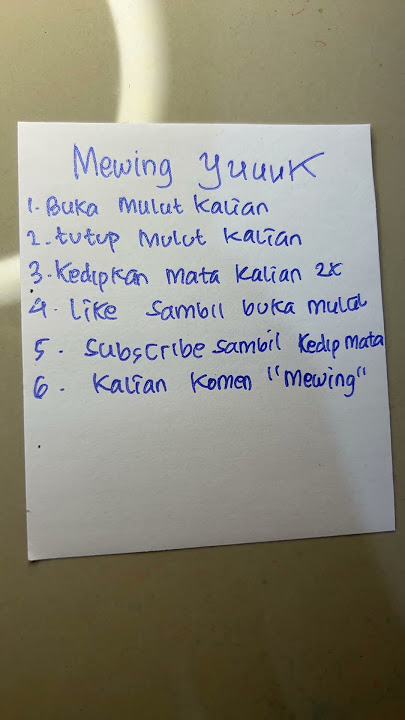 Mewing YuuuK
1. Buka mulut kalian
2. tutup mulut kalian
3. Kedipkan mata kalian 2x
4. Like sambil buka mulut
5. Subscribe sambil Kedip mata
6. Kalian komen "Mewing"